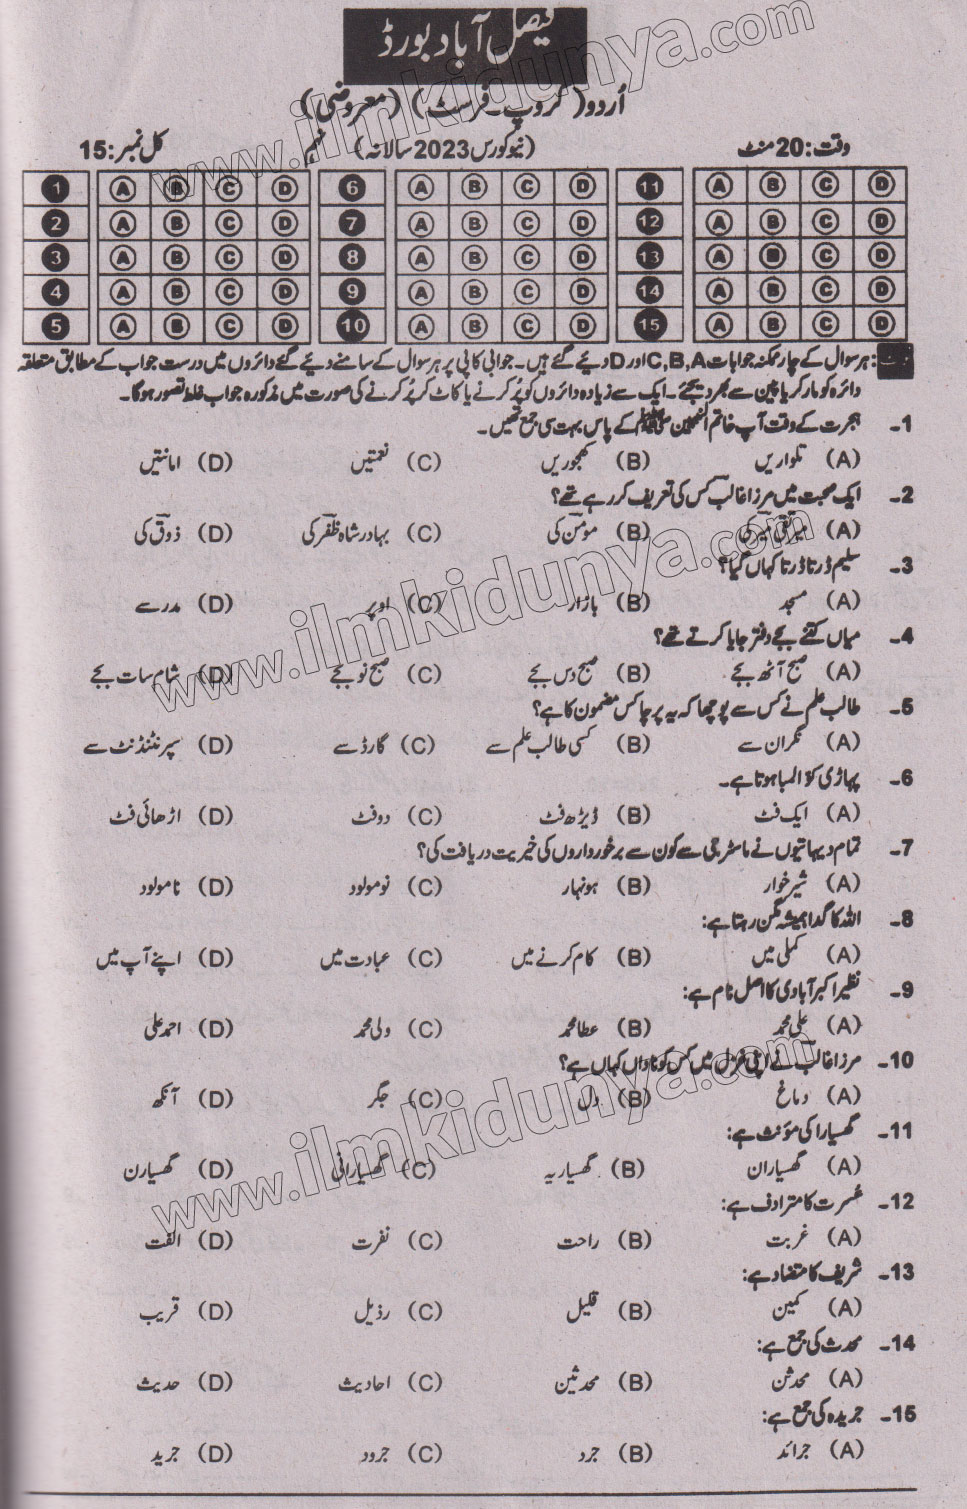 فیصل آباد بورڈ
اُردو (گروپ۔فرسٹ) (معروضی)
وقت: 20 منٹ (نیو کورس 2023 سالانہ) نمبر کل نمبر: 15
1 A B C D 6 A B C D 11 A B C D
2 A B C D 7 A B C D 12 A B C D
3 A B C D 8 A B C D 13 A B C D
4 A B C D 9 A B C D 14 A B C D
5 A B C D 10 A B C D 15 A B C D
نوٹ: ہر سوال کے چار ممکنہ جوابات C,B,A اور D دیئے گئے ہیں۔ جوابی کاپی پر ہر سوال کے سامنے دیئے گئے دائروں میں درست جواب کے مطابق متعلقہ
دائرہ کو مارکر یا پین سے بھر دیجئے۔ ایک سے زیادہ دائروں کو پُر کرنے یا کاٹ کر پُر کرنے کی صورت میں مذکورہ جواب غلط تصور ہوگا۔
1۔ ہجرت کے وقت آپ خاتم النبیین ﷺ کے پاس بہت سی جمع تھیں۔
(A) تلواریں (B) کھجوریں (C) نعمتیں (D) امانتیں
2۔ ایک صحبت میں مرزا غالب کس کی تعریف کر رہے تھے؟
(A) میر تقی میر کی (B) مومن کی (C) بہادر شاہ ظفر کی (D) ذوق کی
3۔ سلیم ڈرتا ڈرتا کہاں گیا؟
(A) مسجد (B) بازار (C) اوپر (D) مدرسے
4۔ میاں کتنے بجے دفتر جایا کرتے تھے؟
(A) صبح آٹھ بجے (B) صبح دس بجے (C) صبح نو بجے (D) شام سات بجے
5۔ طالب علم نے کس سے پوچھا کہ یہ پرچا کس مضمون کا ہے؟
(A) نگران سے (B) کسی طالب علم سے (C) گارڈ سے (D) سپرنٹنڈنٹ سے
6۔ پہاڑی کوّا لمبا ہوتا ہے۔
(A) ایک فٹ (B) ڈیڑھ فٹ (C) دو فٹ (D) اڑھائی فٹ
7۔ تمام دیہاتیوں نے ماسٹر جی سے کون سے برخورداروں کی خیریت دریافت کی؟
(A) شیر خوار (B) ہونہار (C) نومولود (D) نامولود
8۔ اللہ کا گدا ہمیشہ مگن رہتا ہے:
(A) کملی میں (B) کام کرنے میں (C) عبادت میں (D) اپنے آپ میں
9۔ نظیر اکبر آبادی کا اصل نام ہے:
(A) علی محمد (B) عطا محمد (C) ولی محمد (D) احمد علی
10۔ مرزا غالب نے اپنی غزل میں کس کو ناداں کہاں ہے؟
(A) دماغ (B) دل (C) جگر (D) آنکھ
11۔ گھسیارا کی مؤنث ہے:
(A) گھسیاران (B) گھسیاریہ (C) گھسیارانی (D) گھسیارن
12۔ عُسرت کا مترادف ہے:
(A) غربت (B) راحت (C) نفرت (D) الفت
13۔ شریف کا متضاد ہے:
(A) کمین (B) قلیل (C) رذیل (D) قریب
14۔ محدث کی جمع ہے:
(A) محدثن (B) محدثین (C) احادیث (D) حدیث
15۔ جریدہ کی جمع ہے:
(A) جرائد (B) جرد (C) جرود (D) جرید
www.ilmkidunya.com
www.ilmkidunya.com
www.ilmkidunya.com